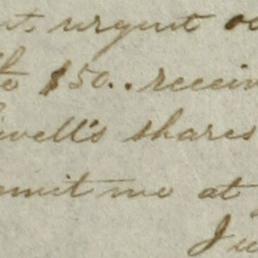 urgent
$50. . receiv
well's shares
emit me at
Ju